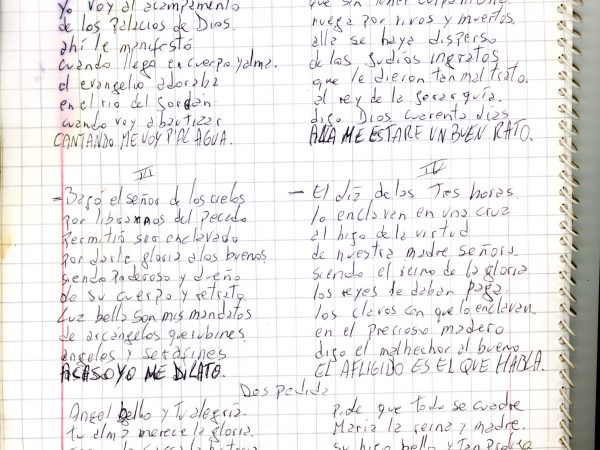 Yo voy al acampamento
de los Palacios de Dios.
ahí le manifestó
cuando llegó en cuerpo y alma.
el evangelio adoraba
en el río del Jordán
cuando voy a bautizar
CANTANDO ME VOY P'AL AGUA.
que sin tener
ruega por vivos y muertos
alla se haya disperso
de los Judíos ingratos
que le dieron tan mal trato.
al rey de la Jerarquía.
digo Dios cuarenta días
ALLA ME ESTARE UN BUEN RATO.
III
- Bajó el señor de los cielos
por libranos del pecado
Permitió ser enclavado
por darle gloria a los buenos
siendo Poderoso y dueño
de su cuerpo y retrato
Luz bella son mis mandatos
de arcángelos querubines
angeles y serafines
ACASO YO ME DILATO.
IV
- El día de las Tres horas
lo enclavan en una cruz
al hijo de la virtud
de nuestra madre Señora.
siendo el reino de la gloria
los reyes le daban paga.
los clavos con que lo enclavan
en el precioso madero
digo el malhechor al bueno
EL AFLIGIDO ES EL QUE HABLA.
Despedida
Angel bello y Tu alegría
tu alma merece la gloria
pide que todo se cuadre
María la reina y madre.
su hijo bello y Tan